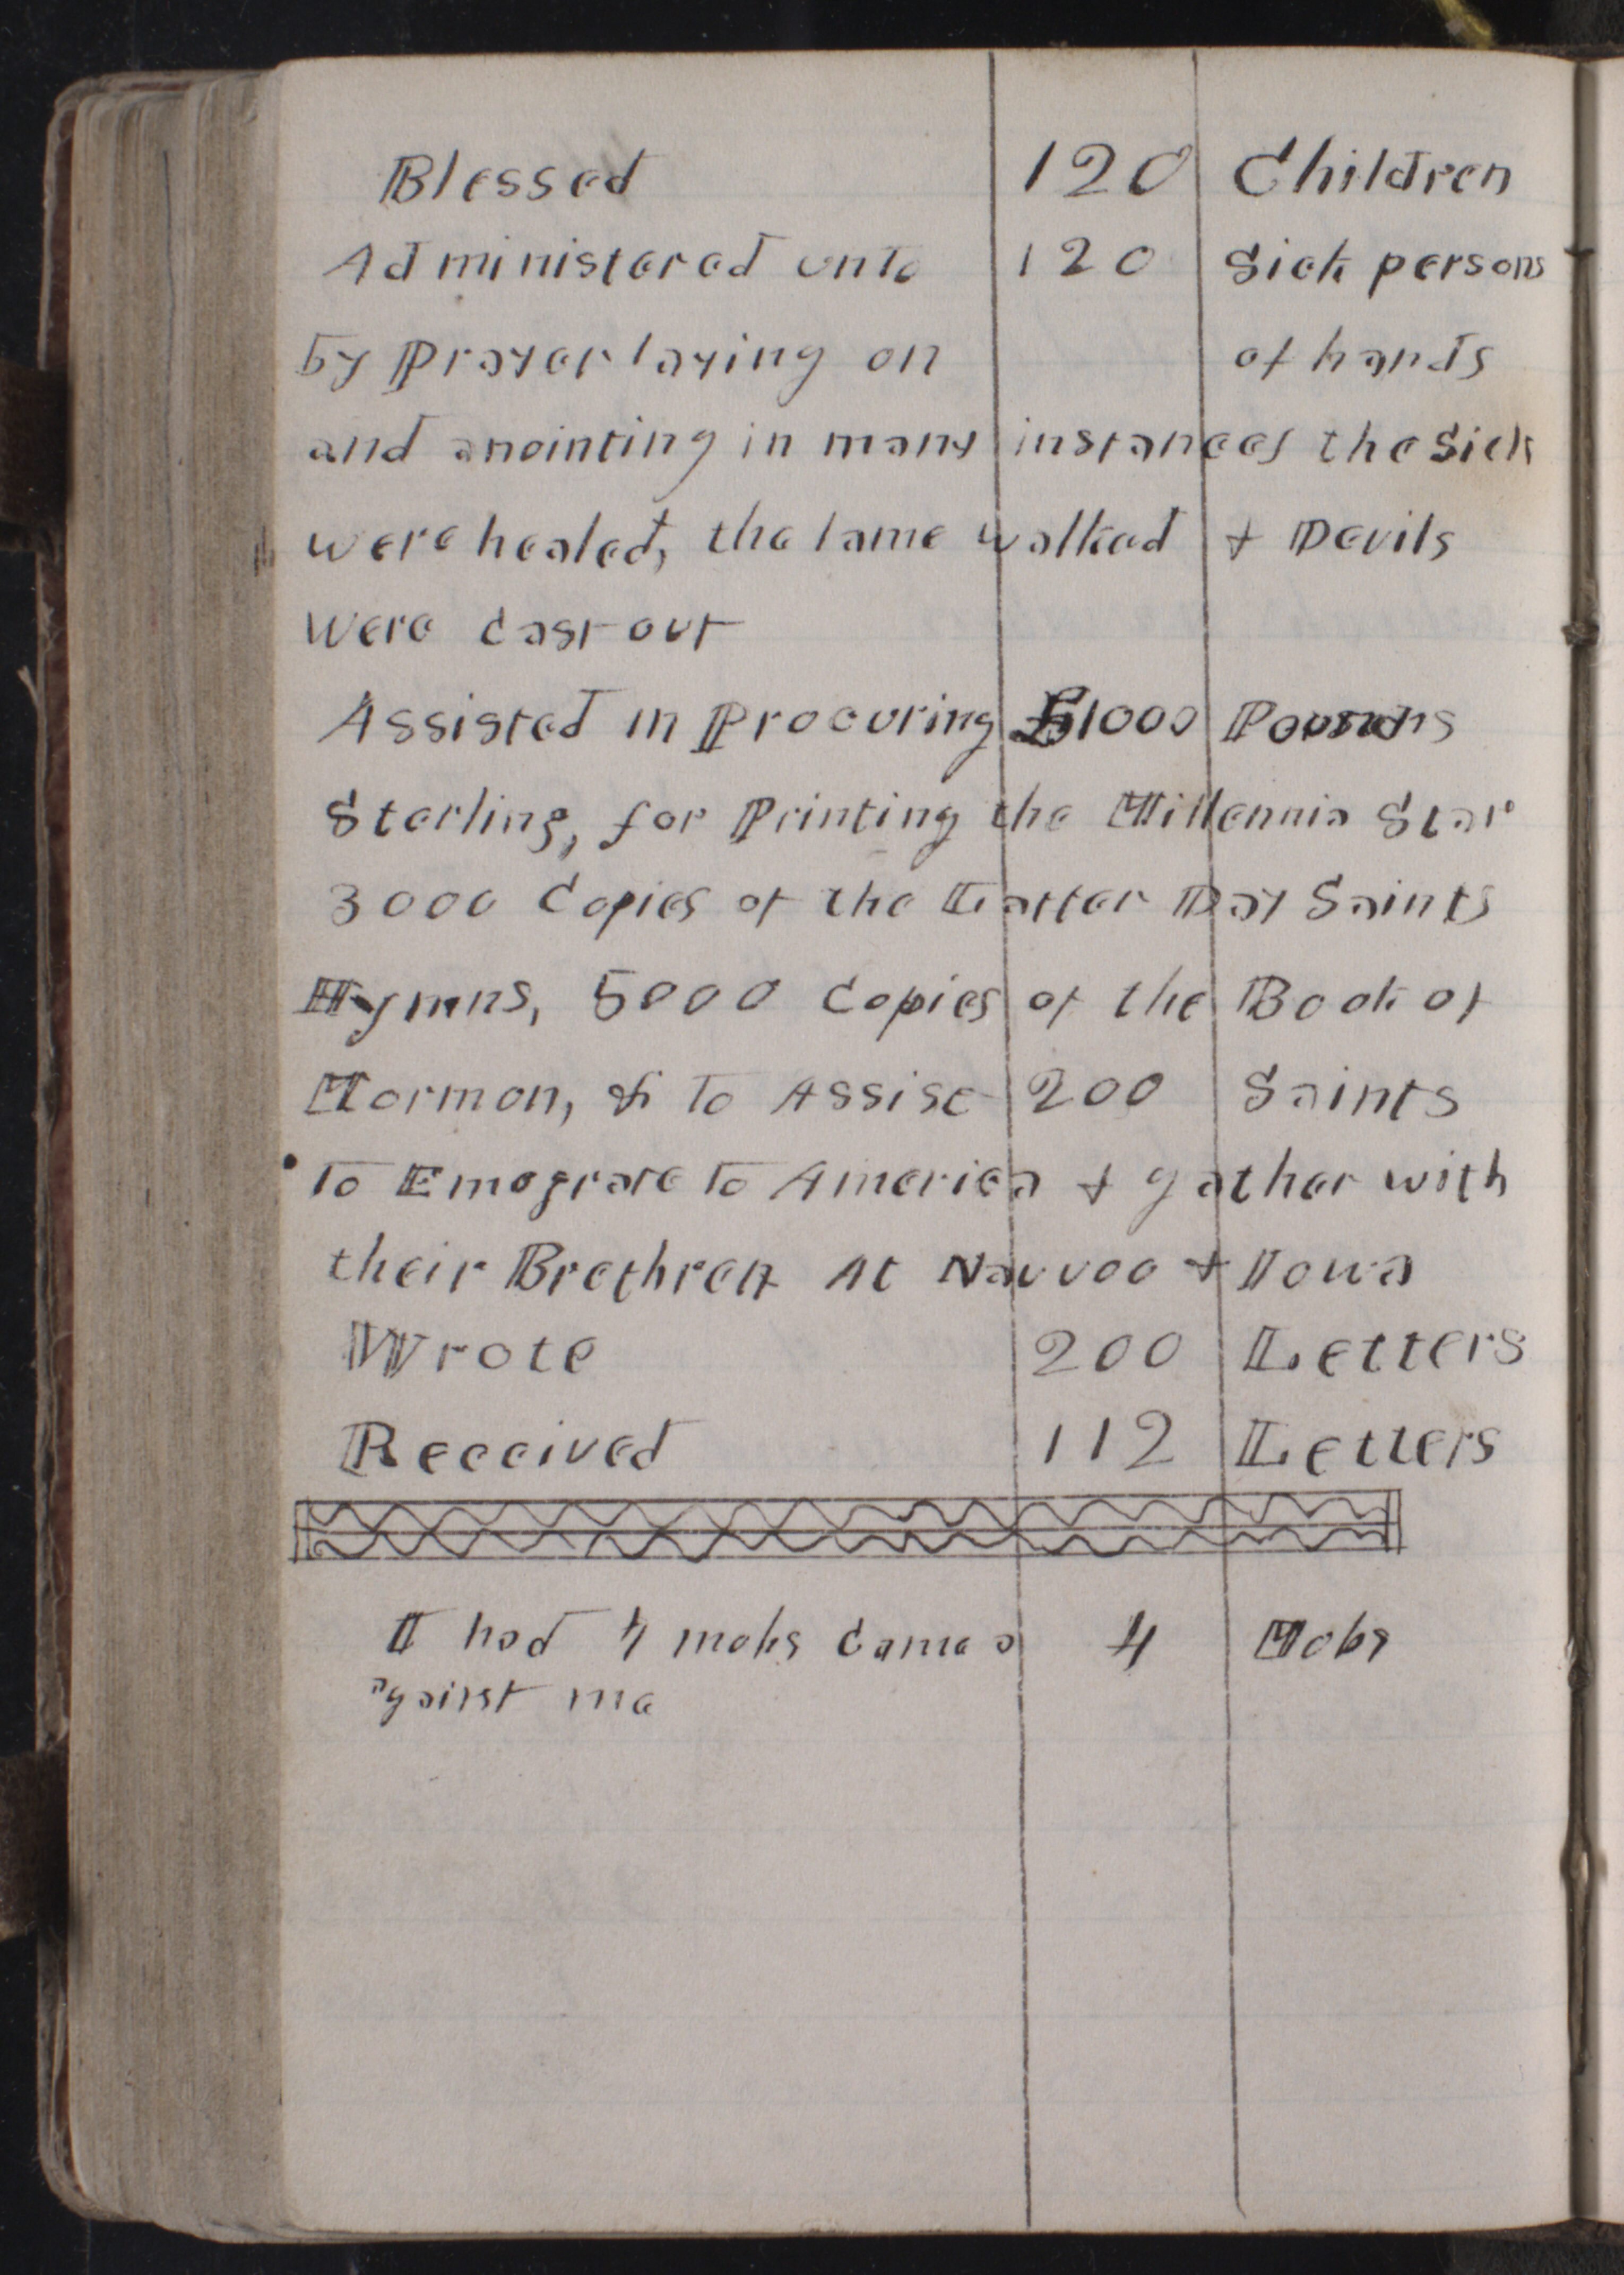 Blessed 120 Children
Administered unto 120 Sick persons
by Prayer laying on of hands
and anointing in many instances the Sick
were healed, the lame walked & Devils
were cast out
Assisted in Procuring £1000 Pounds
Sterling, for Printing the Millennia Star
3000 Copies of the Latter Day Saints
Hymns, 5000 Copies of the Book of
Mormon, & to Assist 200 Saints
to Emograte to America & gather with
their Brethren At Nauvoo & Iowa
Wrote 200 Letters
Received 112 Letters
I had 4 mobs came a 4 Mobs
gainst me